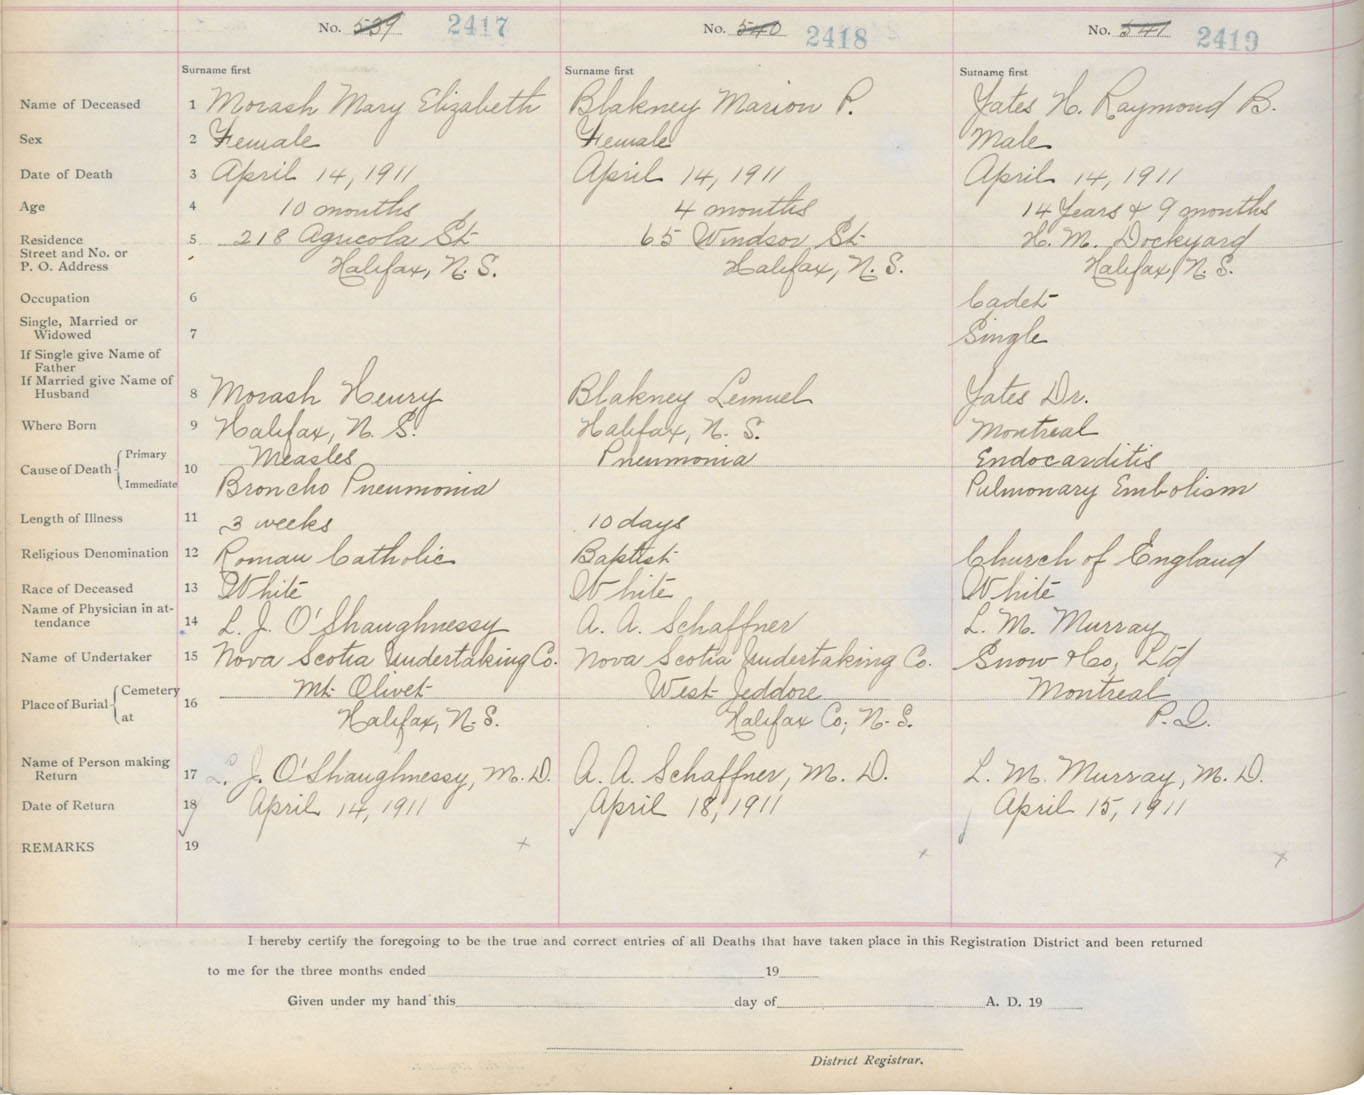 No. 539 2417 No. 540 2418 No. 541 2419
Surname first Surname first Surname first
Name of Deceased 1 Morash Mary Elizabeth Blakney Marion P. Yates H. Raymond B.
Sex 2 Female Female Male
Date of Death 3 April 14, 1911 April 14, 1911 April 14, 1911
Age 4 10 months 4 months 14 Years & 9 months
Residence 5 218 Agricola St 65 Windsor St H. M. Dockyard
Street and No. or
P. O. Address Halifax, N. S. Halifax, N. S. Halifax, N. S.
Occupation 6 Cadet
Single, Married or
Widowed 7 Single
If Single give Name of
Father
If Married give Name of
Husband 8 Morash Henry Blakney Lemuel Yates Dr.
Where Born 9 Halifax, N. S. Halifax, N. S. Montreal
Cause of Death Primary 10 Measles Pneumonia Endocarditis
Immediate Broncho Pneumonia Pulmonary Embolism
Length of Illness 11 3 weeks 10 days
Religious Denomination 12 Roman Catholic Baptist Church of England
Race of Deceased 13 White White White
Name of Physician in at-
tendance 14 L. J. O'Shaughnessy A. A. Schaffner L. M. Murray
Name of Undertaker 15 Nova Scotia Undertaking Co. Nova Scotia Undertaking Co. Snow & Co, Ltd
Place of Burial Cemetery 16 Mt Olivet West Jeddore Montreal
at Halifax, N. S. Halifax Co, N. S. P. Q.
Name of Person making
Return 17 L. J. O'Shaughnessy, M. D. A. A. Schaffner, M. D. L. M. Murray, M. D.
Date of Return 18 April 14, 1911 April 18, 1911 April 15, 1911
REMARKS 19 x x x
I hereby certify the foregoing to be the true and correct entries of all Deaths that have taken place in this Registration District and been returned
to me for the three months ended 19
Given under my hand this day of A. D. 19
District Registrar.